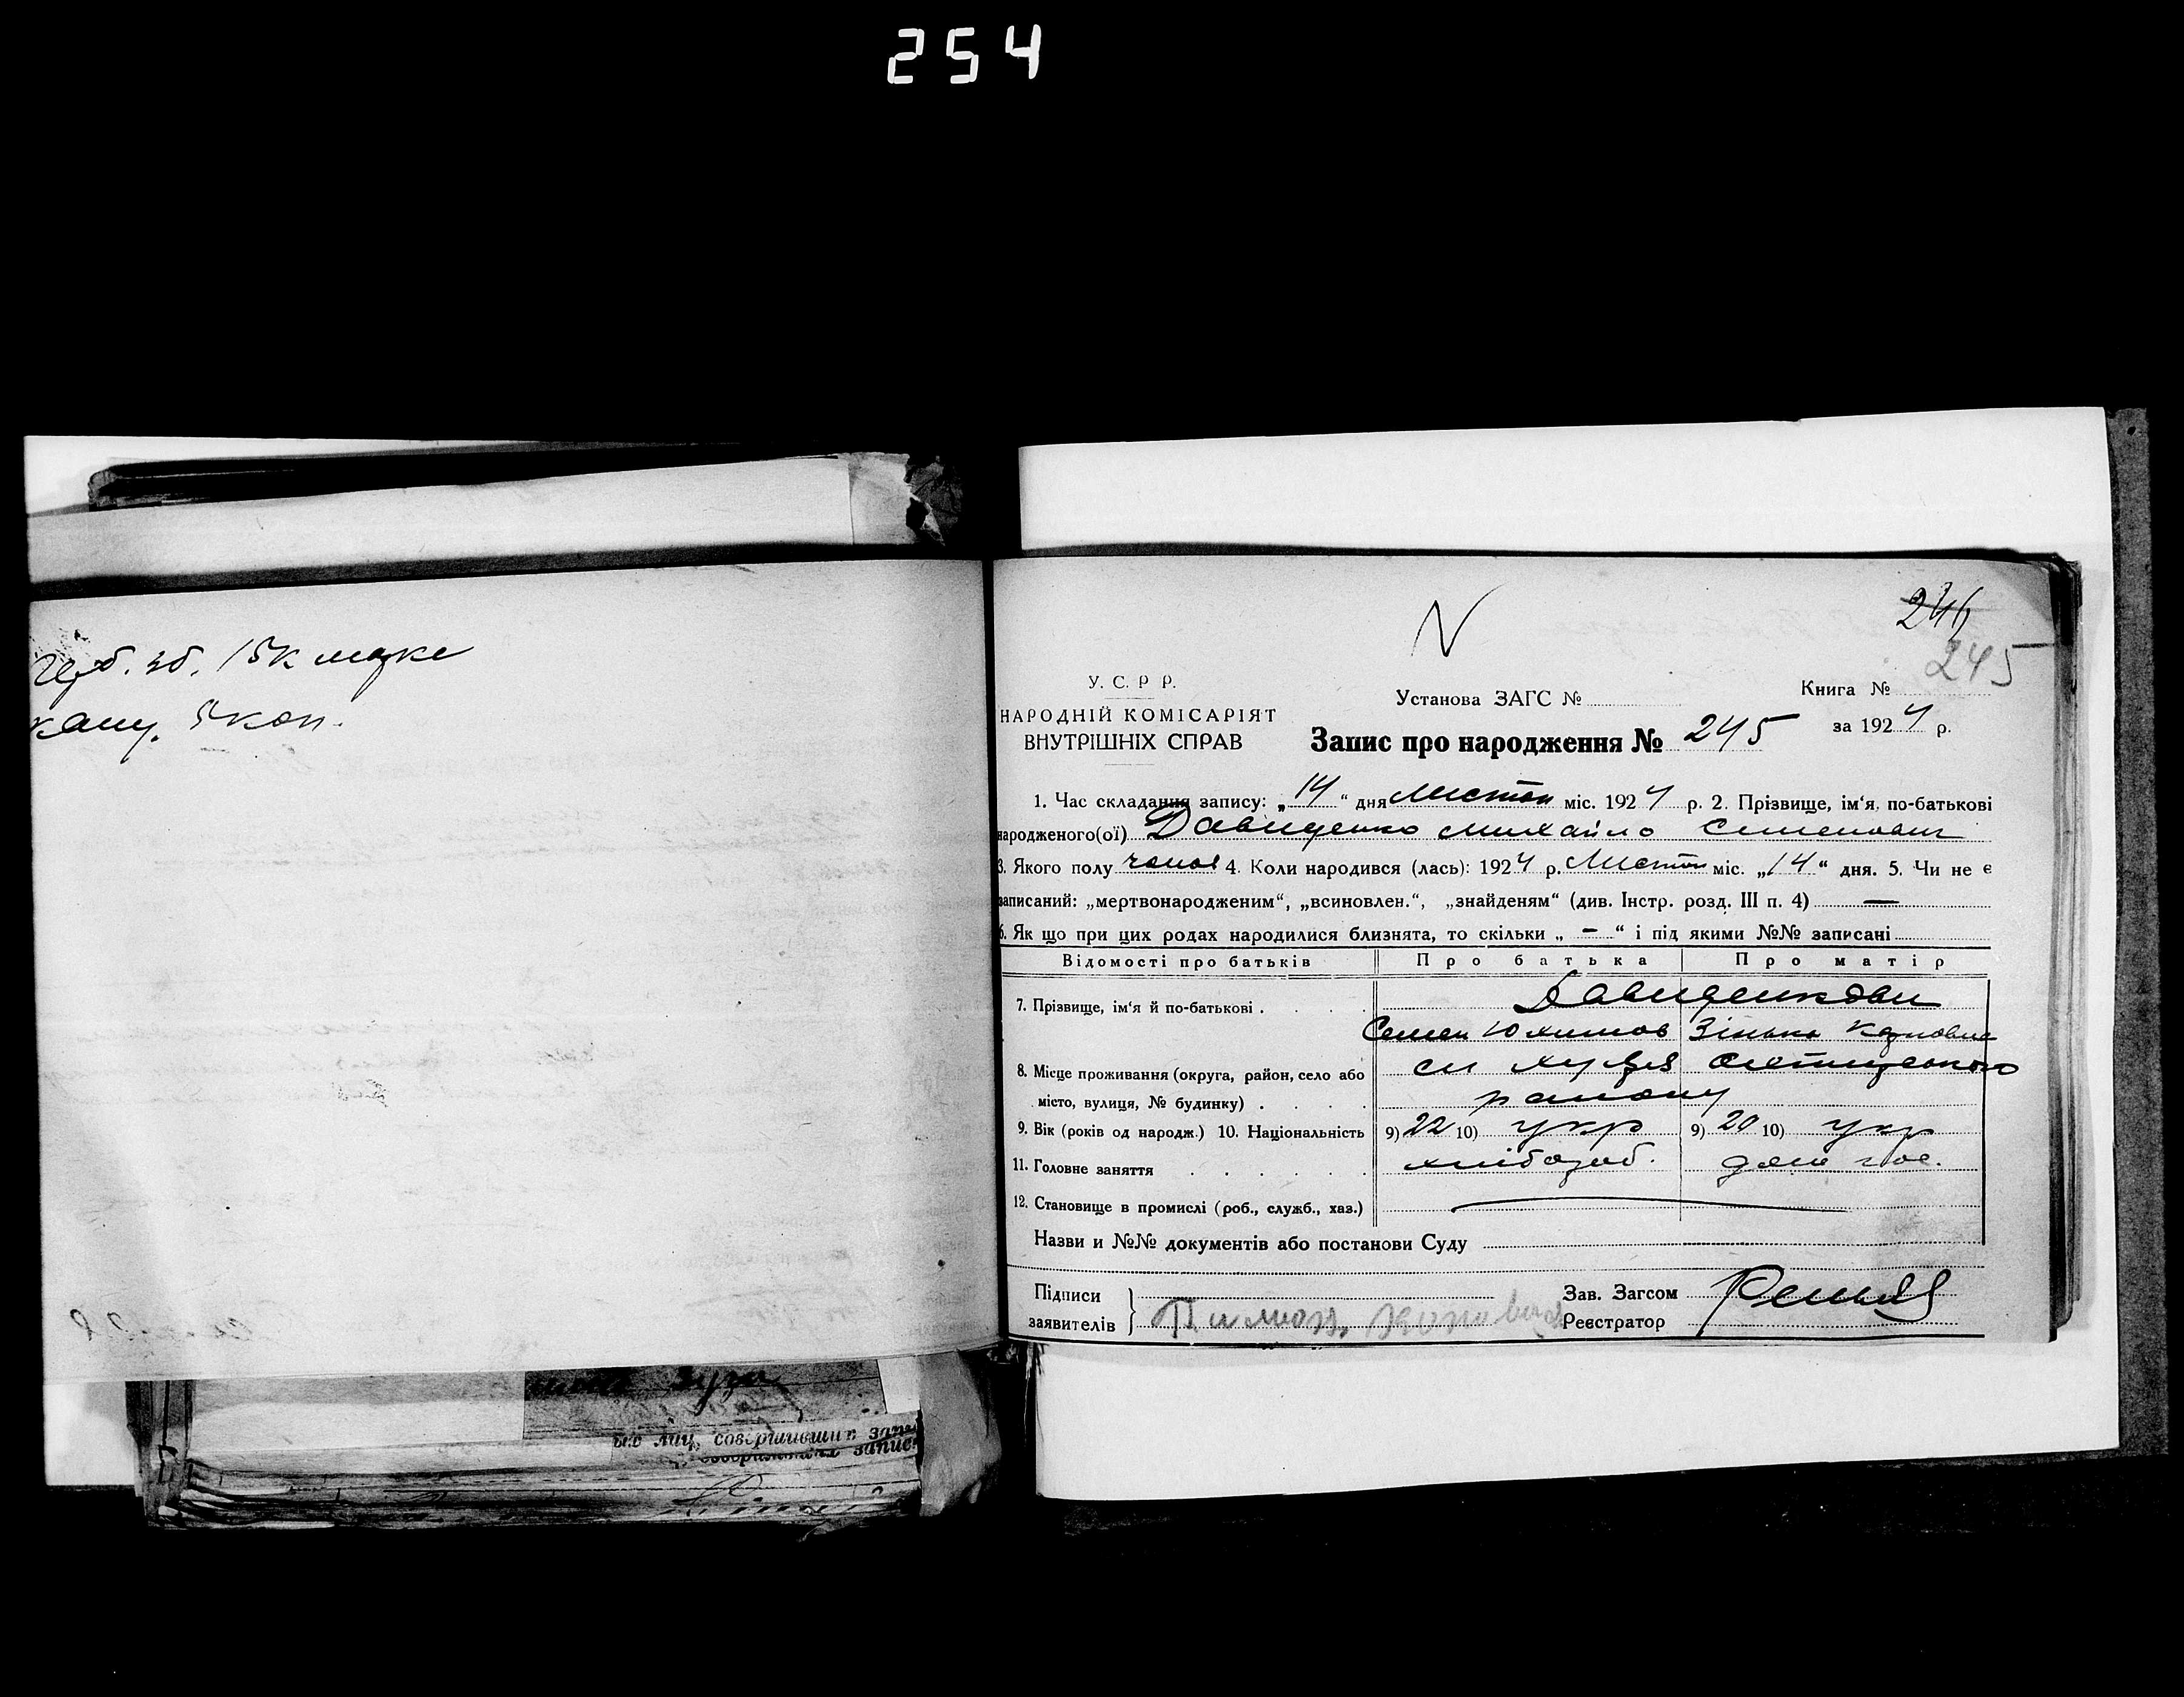 254
Герб. зб. 15к марке
канц. 5 коп.
246
245
У. С. Р Р.
НАРОДНІЙ КОМІСАРІЯТ
ВНУТРІШНІХ СПРАВ
Установа ЗАГС №
Книга №
за 1924 р.
Запис про народження № 245
1. Час складання запису: „14“ дня Листоп міс. 1924 р. 2. Прізвище, ім'я, по-батькові
народженого(ої) Давиденко Михайло Семенович
3. Якого полу чолов 4. Коли народився (лась): 1924 р. Листоп міс. „14“ дня. 5. Чи не є
записаний: „мертвонародженим“, „всиновлен.“, „знайденям“ (див. Інстр. розд. III п. 4) —
6. Як що при цих родах народилися близнята, то скільки „ — “ і під якими №№ записані
Відомості про батьків Про батька Про матір
7. Прізвище, ім'я й по-батькові . Давиденкови
Семен Юхимов Зінька
8. Місце проживання (округа, район, село або
місто, вулиця, № будинку) . району
9. Вік (років од народж.) 10. Національність 9) 22 10) укр 9) 20 10) укр
11. Головне заняття хлібороб. дом гос.
12. Становище в промислі (роб., служб., хаз.)
Назви и №№ документів або постанови Суду
Підписи
заявителів
Зав. Загсом
Реєстратор
лиц, совершивших запис